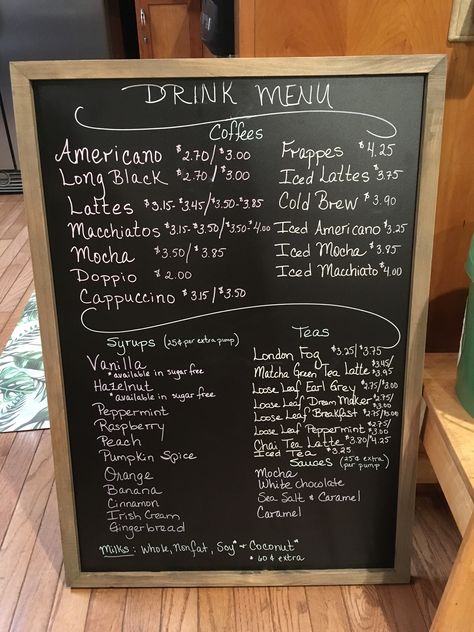 DRINK MENU
Coffees
Americano $2.70/$3.00
Long Black $2.70/$3.00
Lattes $3.15-$3.45/$3.50-$3.85
Macchiatos $3.15-$3.45/$3.50-$4.00
Mocha $3.50/$3.85
Doppio $2.00
Cappuccino $3.15/$3.50
Frappes $4.25
Iced Lattes $3.75
Cold Brew $3.90
Iced Americano $3.25
Iced Mocha $3.95
Iced Macchiato $4.00
Syrups (25¢ per extra pump)
Vanilla
*available in sugar free
Hazelnut
*available in sugar free
Peppermint
Raspberry
Peach
Pumpkin Spice
Orange
Banana
Cinnamon
Irish Cream
Gingerbread
Teas
London Fog $3.25/$3.75
Matcha Green Tea Latte $3.45/$3.95
Loose Leaf Earl Grey $2.75/$3.00
Loose Leaf Dream Maker $2.75/$3.00
Loose Leaf Breakfast $2.75/$3.00
Loose Leaf Peppermint $2.75/$3.00
Chai Tea Latte $3.80/4.25
Iced Tea $3.25
Sauces (25¢ extra per pump)
Mocha
White chocolate
Sea Salt & Caramel
Caramel
Milks: Whole, Nonfat, Soy* & Coconut*
* 60¢ extra